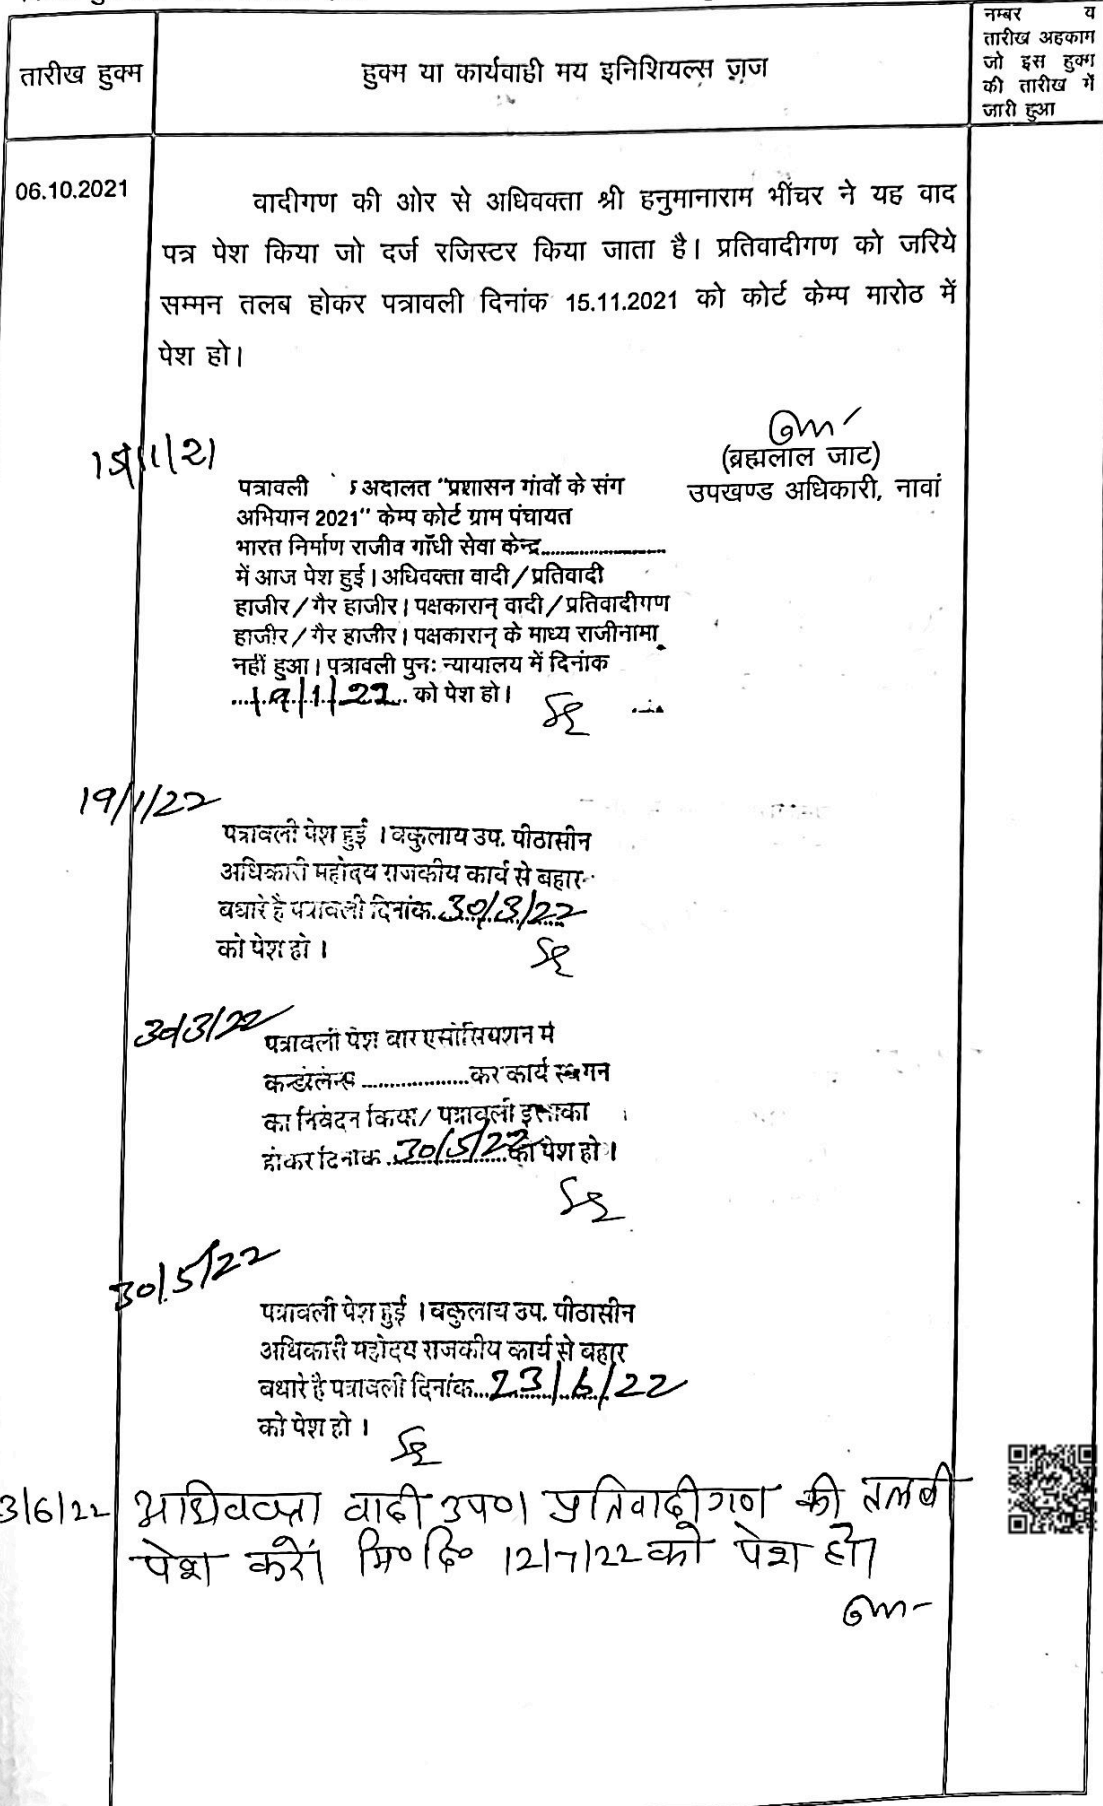 तारीख हुक्म
हुक्म या कार्यवाही मय इनिशियल्स ज़ज
नम्बर व
तारीख अहकाम
जो इस हुक्म
की तारीख में
जारी हुआ
06.10.2021
वादीगण की ओर से अधिवक्ता श्री हनुमानाराम भींचर ने यह वाद
पत्र पेश किया जो दर्ज रजिस्टर किया जाता है। प्रतिवादीगण को जरिये
सम्मन तलब होकर पत्रावली दिनांक 15.11.2021 को कोर्ट केम्प मारोठ में
पेश हो।
(ब्रह्मलाल जाट)
उपखण्ड अधिकारी, नावां
15/11/21
पत्रावली अदालत "प्रशासन गांवों के संग
अभियान 2021" केम्प कोर्ट ग्राम पंचायत
भारत निर्माण राजीव गाँधी सेवा केन्द्र....................
में आज पेश हुई। अधिवक्ता वादी/प्रतिवादी
हाजीर/गैर हाजीर। पक्षकारान् वादी/प्रतिवादीगण
हाजीर/गैर हाजीर। पक्षकारान् के माध्य राजीनामा
नहीं हुआ। पत्रावली पुनः न्यायालय में दिनांक
19/1/22 को पेश हो।
19/1/22
पत्रावली पेश हुई । वकुलाय उप. पीठासीन
अधिकारी महोदय राजकीय कार्य से बहार
बधारे है पत्रावली दिनांक 30/3/22
को पेश हो ।
30/3/22
पत्रावली पेश बार एसोसियशन में
कन्डोलेन्स ....................कर कार्य स्थगन
का निवेदन किया/ पत्रावली इत्तलाका
होकर दिनांक 30/5/22 को पेश हो ।
30/5/22
पत्रावली पेश हुई । वकुलाय उप. पीठासीन
अधिकारी महोदय राजकीय कार्य से बहार
बधारे है पत्रावली दिनांक 23/6/22
को पेश हो ।
3/6/22 अधिवक्ता वादी उप0। प्रतिवादीगण की तलबी
पेश करें। मि० दि० 12/7/22 को पेश हो।